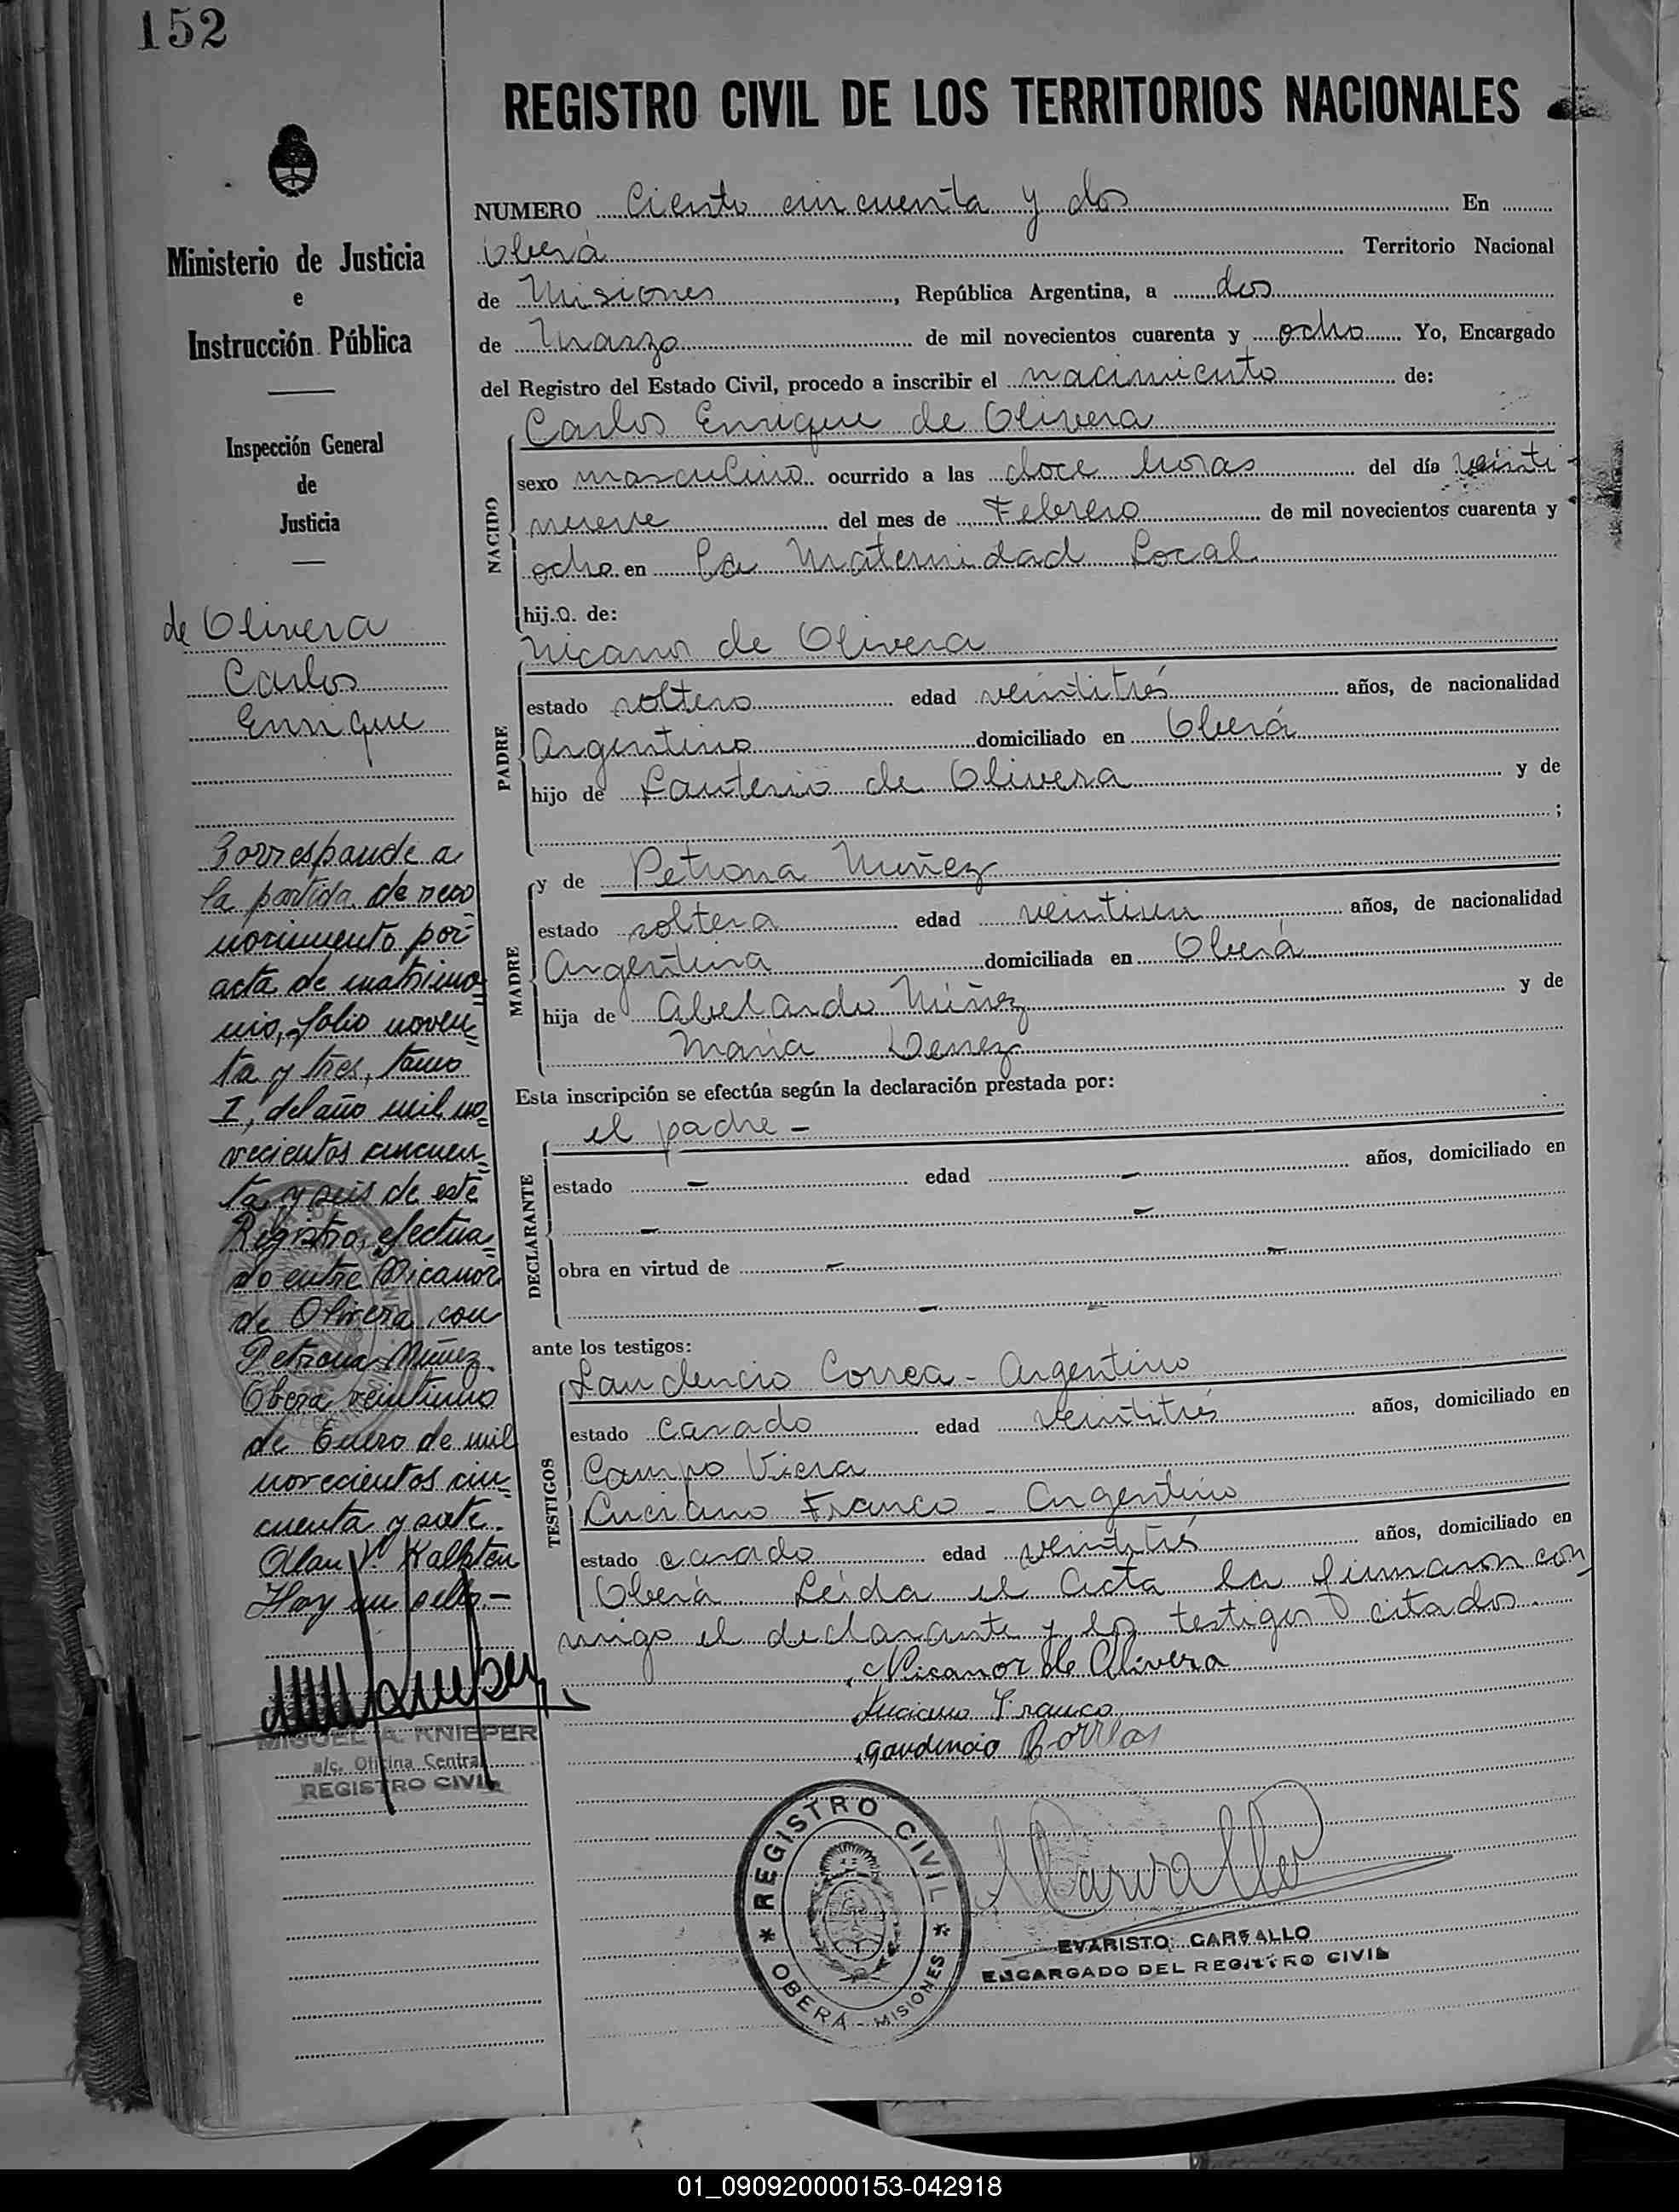 152
REGISTRO CIVIL DE LOS TERRITORIOS NACIONALES
Ministerio de Justicia
e
Instrucción Pública
Inspección General
de
Justicia
de Olivera
Carlos
Enrique
Corresponde a
la partida de reco
nocimiento por
acta de matrimo
nio, folio noven
ta y tres, tomo
I, del año mil no
vecientos cincuen
ta y seis de este
Registro, efectua
do entre Nicanor
de Olivera con
Petrona Núñez.
Oberá veintiuno
de Enero de mil
novecientos cin
cuenta y siete.
Hay un sello.-
MIGUEL A. KNIEPER
a/c. Oficina Central
REGISTRO CIVIL
NUMERO Ciento cincuenta y dos En
Oberá Territorio Nacional
de Misiones, República Argentina, a dos
de Marzo de mil novecientos cuarenta y ocho Yo, Encargado
del Registro del Estado Civil, procedo a inscribir el nacimiento de:
NACIDO
Carlos Enrique de Olivera
sexo masculino ocurrido a las doce horas del día veinti-
nueve del mes de Febrero de mil novecientos cuarenta y
ocho en La Maternidad Local
hij.o. de:
PADRE
Nicanor de Olivera
estado soltero edad veintitrés años, de nacionalidad
Argentino domiciliado en Oberá
hijo de de Olivera y de
;
MADRE
y de Petrona Nuñez
estado soltera edad veintiun años, de nacionalidad
Argentina domiciliada en Oberá
hija de Abelardo Núñez y de
María
Esta inscripción se efectúa según la declaración prestada por:
DECLARANTE
el padre -
estado - edad - años, domiciliado en
- -
obra en virtud de - -
- -
ante los testigos:
TESTIGOS
Correa - Argentino
estado casado edad veintitrés años, domiciliado en
Campo Viera
Luciano Franco - Argentino
estado casado edad veintitrés años, domiciliado en
Oberá Leída el Acta la firmaron con
migo el declarante y los testigos citados.
Nicanor de Olivera
Luciano Franco
gaudencio
REGISTRO CIVIL
* OBERÁ - MISIONES *
Carvallo
EVARISTO CARVALLO
ENCARGADO DEL REGISTRO CIVIL
01_090920000153-042918